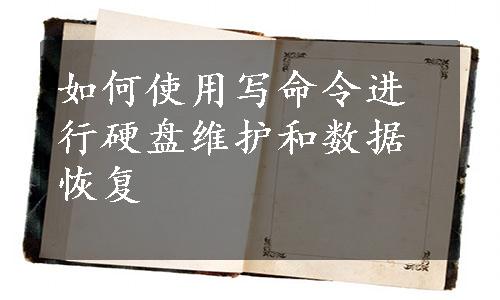 如何使用写命令进
行硬盘维护和数据
恢复